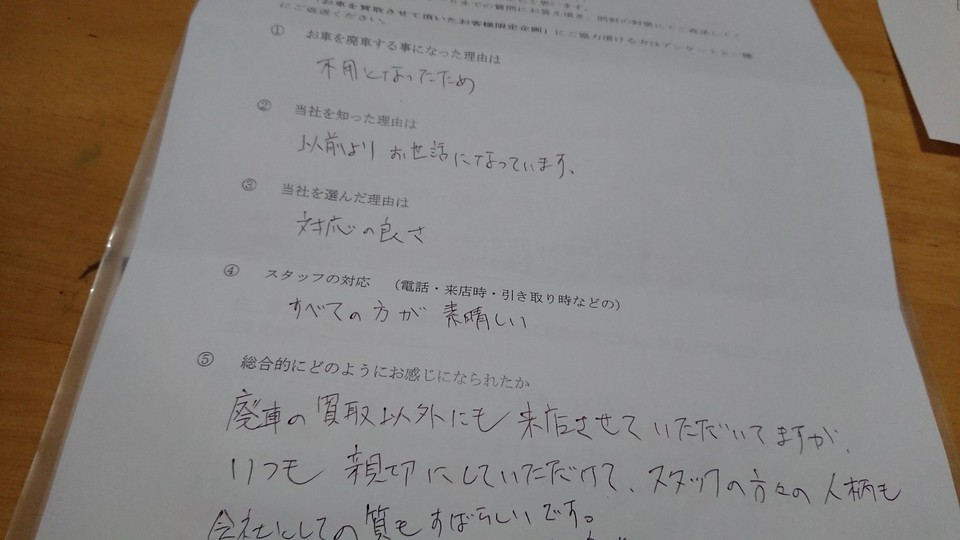 お車を買取させて頂いたお客様限定企画」にご協力頂ける方はアンケート
にご返送ください。
① お車を廃車する事になった理由は
不用となったため
② 当社を知った理由は
以前より お世話になっています。
③ 当社を選んだ理由は
対応の良さ
④ スタッフの対応 （電話・来店時・引き取り時などの）
すべての方が 素晴しい
⑤ 総合的にどのようにお感じになられたか
廃車の買取以外にも 来店させていただいてますが、
いつも 親切にしていただけて、スタッフの方々の人柄も
会社としての質もすばらしいです。